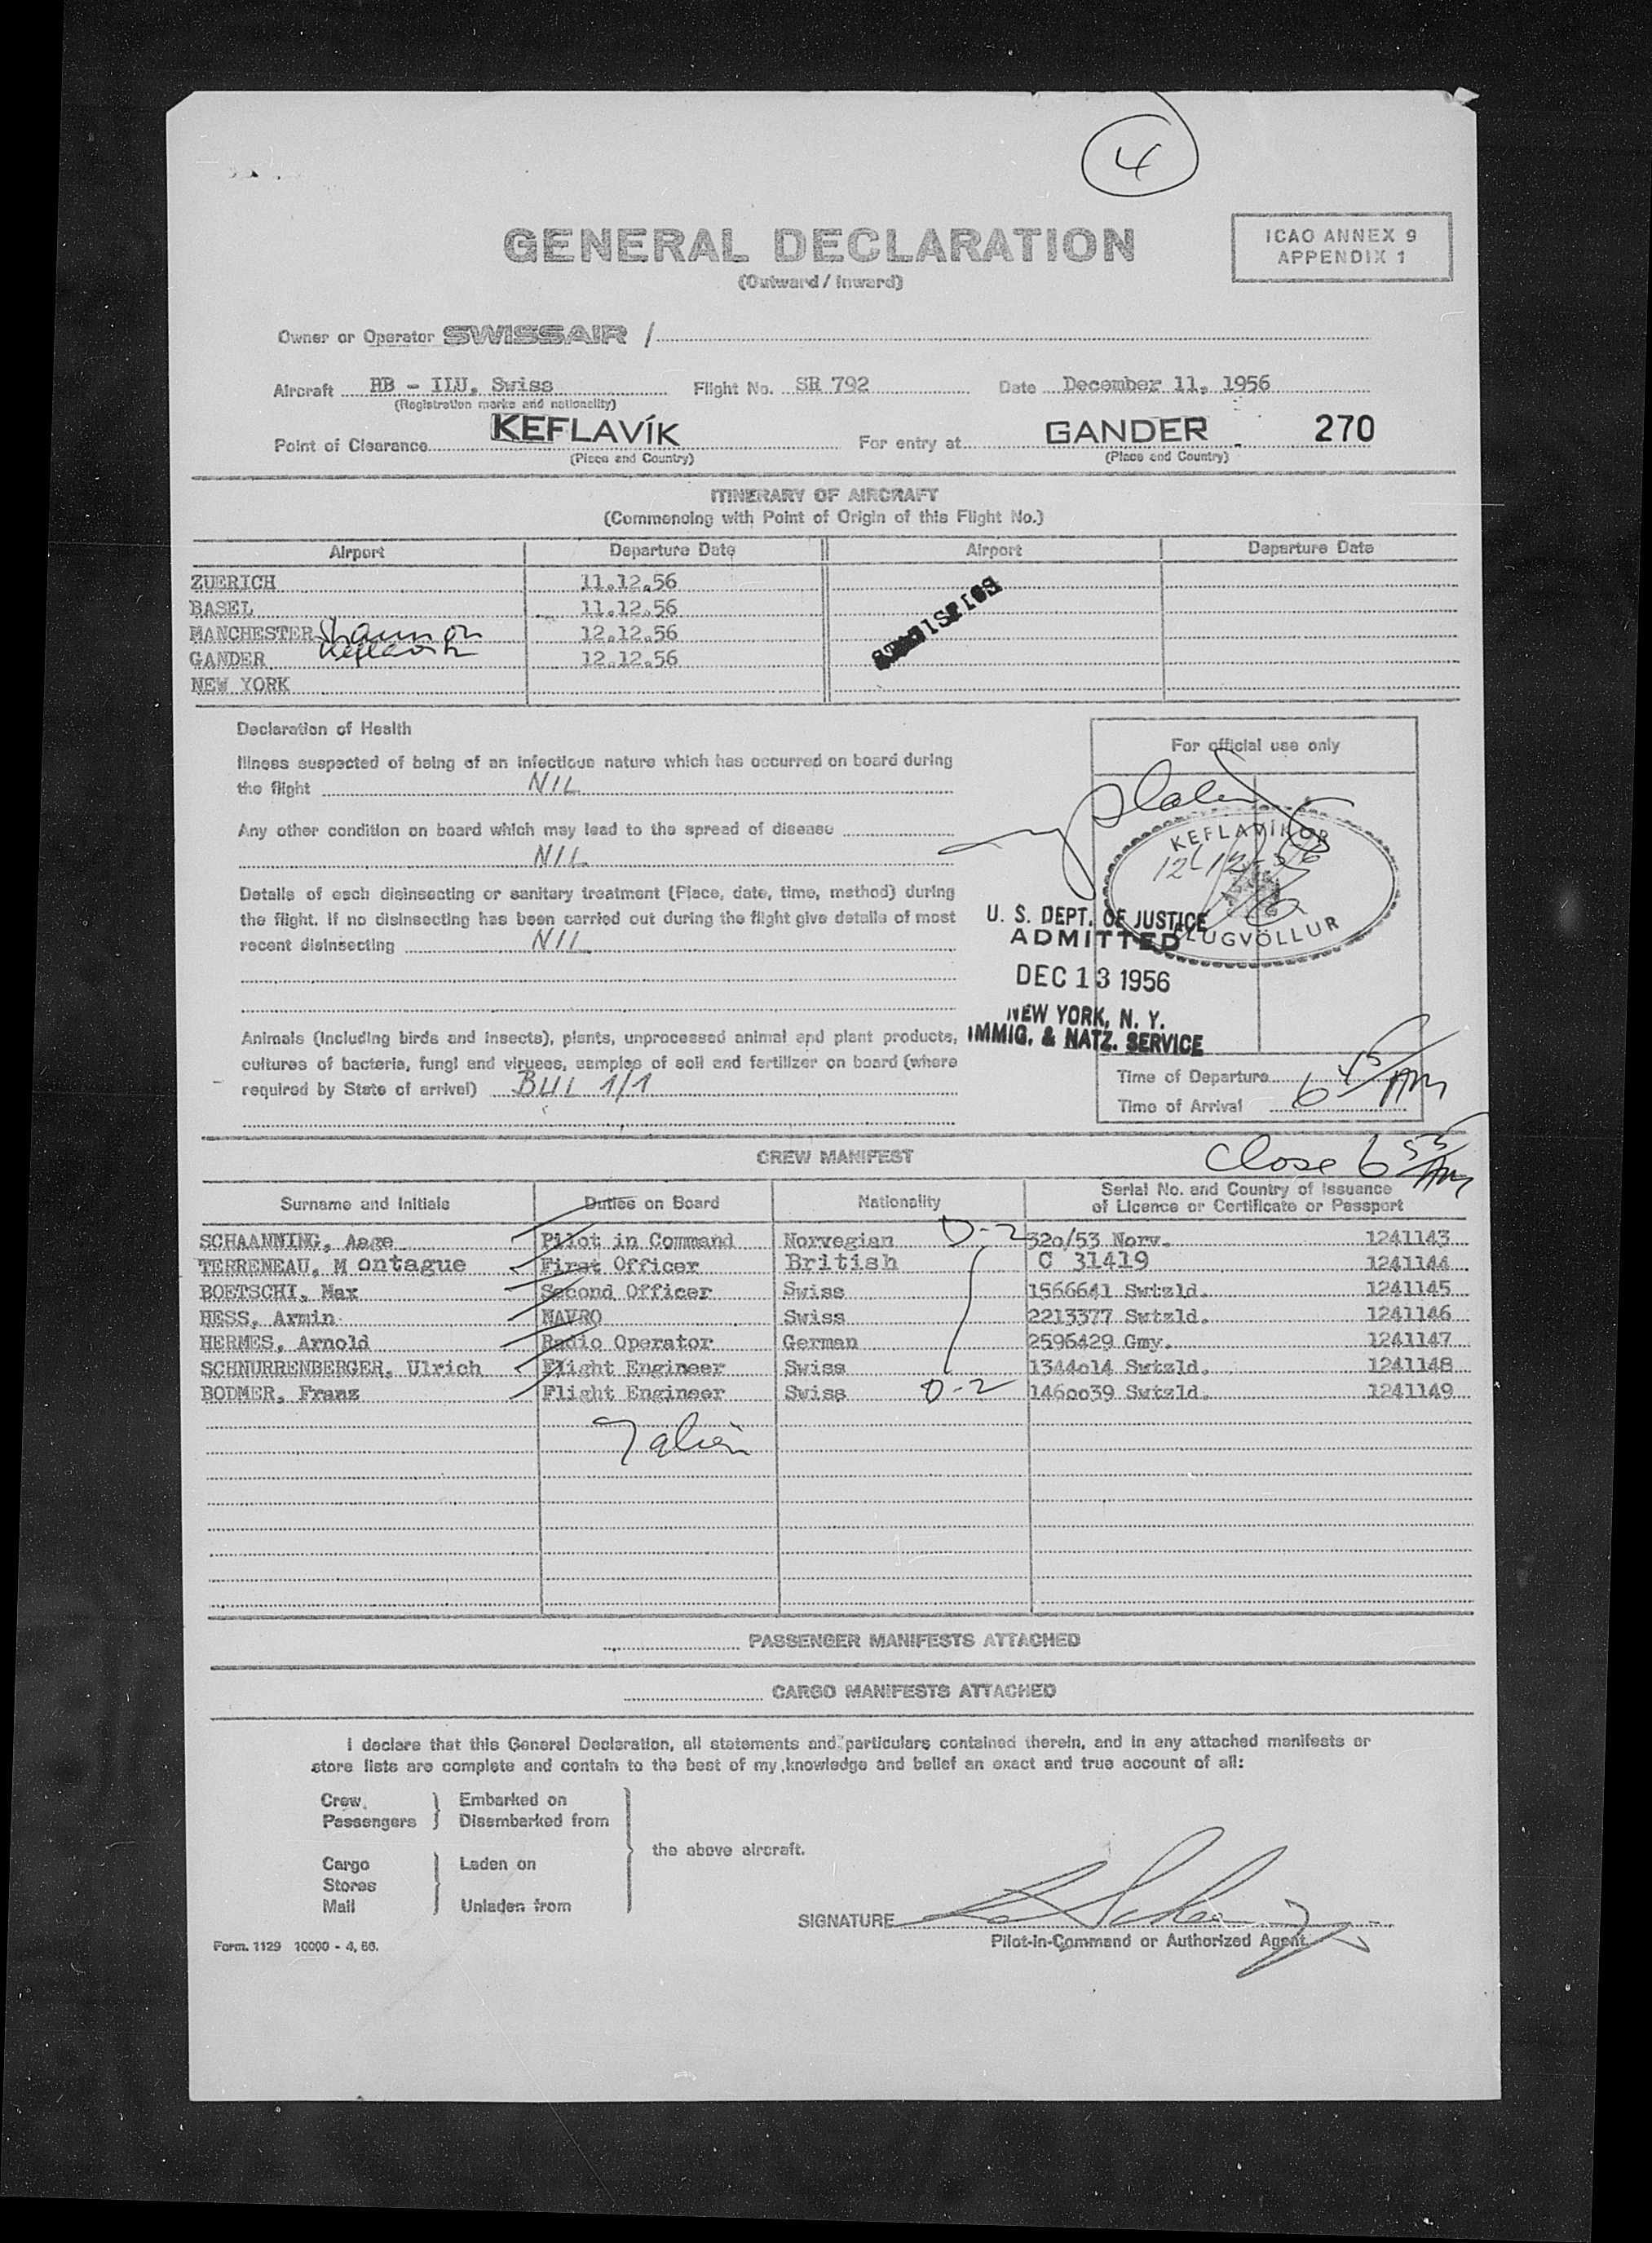 4
GENERAL DECLARATION
(Outward / Inward)
ICAO ANNEX 9
APPENDIX 1
Owner or Operator SWISSAIR /
Aircraft HB - ILU, Swiss Flight No. SR 792 Date December 11, 1956
(Registration marks and nationality)
Point of Clearance KEFLAVÍK For entry at GANDER 270
(Place and Country) (Place and Country)
ITINERARY OF AIRCRAFT
(Commencing with Point of Origin of this Flight No.)
Airport Departure Date Airport Departure Date
ZUERICH 11.12.56
BASEL 11.12.56
MANCHESTER Shannon 12.12.56
GANDER Keflavik 12.12.56
NEW YORK
Declaration of Health
Illness suspected of being of an infectious nature which has occurred on board during
the flight NIL
Any other condition on board which may lead to the spread of disease
NIL
Details of each disinsecting or sanitary treatment (Place, date, time, method) during
the flight. If no disinsecting has been carried out during the flight give details of most
recent disinsecting NIL
Animals (including birds and insects), plants, unprocessed animal and plant products,
cultures of bacteria, fungi and viruses, samples of soil and fertilizer on board (where
required by State of arrival) BUL 1/1
For official use only
KEFLAVÍKUR
12/12-56
FLUGVÖLLUR
U. S. DEPT. OF JUSTICE
ADMITTED
DEC 13 1956
NEW YORK, N. Y.
IMMIG. & NATZ. SERVICE
Time of Departure
Time of Arrival 6 45 AM
CREW MANIFEST
Close 6 55 AM
Surname and Initials Duties on Board Nationality Serial No. and Country of Issuance
of Licence or Certificate or Passport
SCHAANNING, Aage Pilot in Command Norwegian D-2 32o/53 Norw. 1241143
TERRENEAU, M ontague First Officer British C 31419 1241144
BOETSCHI, Max Second Officer Swiss 1566641 Swtzld. 1241145
HESS, Armin NAVRO Swiss 2213377 Swtzld. 1241146
HERMES, Arnold Radio Operator German 2596429 Gmy. 1241147
SCHNURRENBERGER, Ulrich Flight Engineer Swiss 1344o14 Swtzld. 1241148
BODMER, Franz Flight Engineer Swiss D-2 146oo39 Swtzld. 1241149
PASSENGER MANIFESTS ATTACHED
CARGO MANIFESTS ATTACHED
I declare that this General Declaration, all statements and particulars contained therein, and in any attached manifests or
store lists are complete and contain to the best of my knowledge and belief an exact and true account of all:
Crew Embarked on
Passengers Disembarked from
the above aircraft.
Cargo Laden on
Stores
Mail Unladen from
SIGNATURE
Pilot-in-Command or Authorized Agent
Form. 1129 10000 - 4, 56.